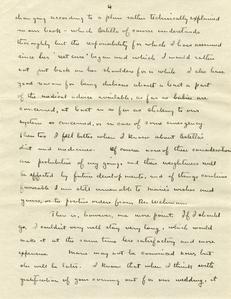 4
changing according to a plan rather technically explained
in our books - which Estella of course understands
thoroughly but the responsibility for which I have assumed
since her "rest cure" began and which I would rather
not put back on her shoulders for a while. I also have
good reason for being dubious about at least a part
of the medical advice available, as far as babies are
concerned, at least in so far as sticking to our
system is concerned, or in case of some emergency.
Then too I feel better when I know about Estella's
diet and medicines. Of course none of these considerations
are prohibitive of my going and their weightiness will
be affected by future developments, and if things continue
favorable I am still amenable to Marie's wishes and
yours, or to parties orders from
There is, however, one more point. If I should
go, I couldn't very well stay very long, which would
make it at the same time less satisfactory and more
expensive. Marie may not be convinced now, but
she will be later. I know that when I think with
gratification of your coming out for our wedding, it